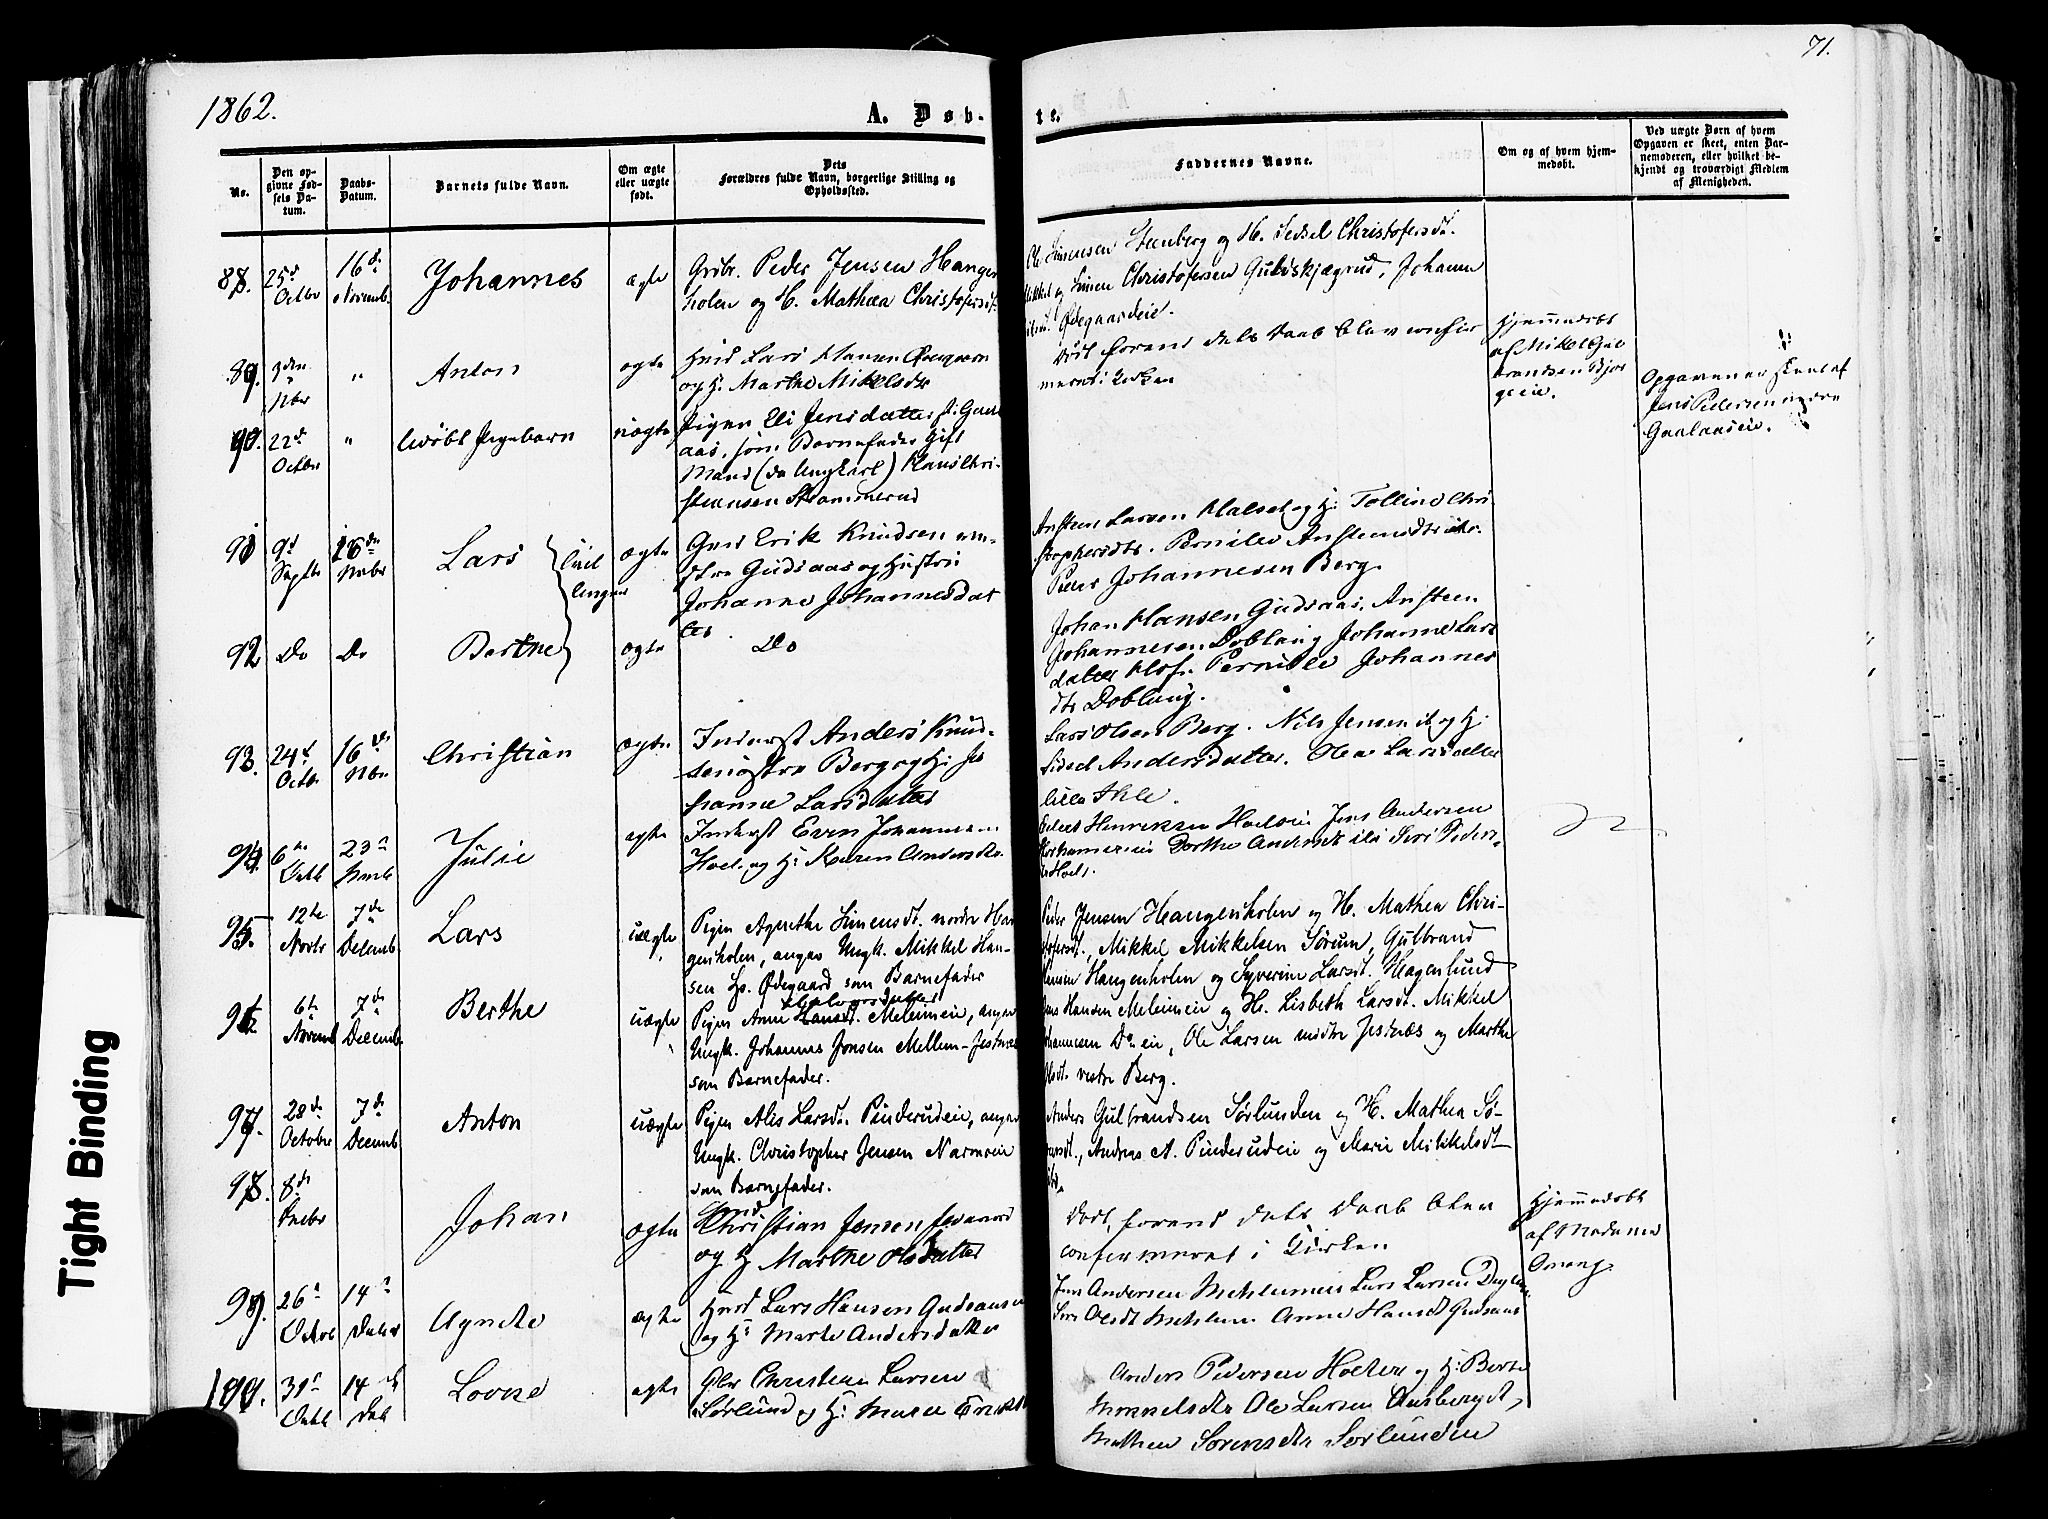 71.
1862.
A. Døb-
te.
No.
Den op-
givne Fød-
sels Da-
tum.
Daabs-
Datum.
Barnets fulde Navn.
Om ægte
eller uægte
født.
Dets
Forældres fulde Navn, borgerlige Stilling og
Opholdssted.
Faddernes Navne.
Om og af hvem hjem-
medøbt.
Ved uægte Børn af hvem
Opgaven er skeet, enten Bar-
nemoderen, eller hvilket be-
kjendt og troværdigt Medlem
af Menigheden.
88.
25d
Octbr
16de
Novemb.
Johannes
ægte
Grbr. Peder Jensen Hangen-
holen og H. Mathea Christofersdt.
Ole Simensen Steenberg og H. Sidsel Christofersdt.
Mikkel og Simen Christofersen Guldskjægrud, Johanne
Ødegaardeie.
89.
3den
Nbr
"
Anton
ægte
Hmd Lars Hansen
og H: Marthe Mikelsdtr
Død forend dets Daab blev confir
meret i Kirken
Hjemmedøbt
af Mikel Gul
brandsen Bjør
geeie.
90.
22d
Octbr
"
Udøbt Pigebarn
uægte
Pigen Eli Jensdatter
aas, som Barnefader Gift
Mand (da Ungkarl) Hans Chri-
stiansen Skammerud
Opgaven er skeet af
Jens Pedersen nedre
Gaalaaseie.
91
9d
Septbr
16de
Novbr
Lars
Tvil
linger
ægte
Gmd Erik Knudsen ve-
stre Gudsaas og Hustru
Johanne Johannesdat
ter.
Austeen Larsen Halset og H: Telline Chri-
stophersdtr. Pernille Austeensdtr
Peder Johannesen Berg.
92
Do
Do
Berthe
ægte
Do
Johan Hansen Gudsaas, Austeen
Johannesen Doblaug Johanne Lars
datter Hof. Pernille Johannes
dtr Doblaug.
93.
24d
Octbr
16de
Nbr
Christian
ægte
Inderst Anders Knud-
sen østre Berg og H: Jo
hanne Larsdatter
Lars Olsen Berg. Nils Jensen it og H:
Sidsel Andersdatter. Olea Larsdatter
lille Ihle.
94.
6te
Octb
23d
Novb
Julie
ægte
Inderst Even Johannesen
Hoel og H: Karen Andersdtr
Henriksen Hoelseie Jens Andersen
Dorthe Andersdt Siri Peders
Hoel.
95.
12te
Novbr
7de
Decemb.
Lars
uægte
Pigen Agnethe Simensdt. nordre Han
genholen, angav Ungk. Mikkel Han-
sen Hs. Ødegaard som Barnefader
Peder Jensen Hangenholen og H. Mathea Chri-
stofersdt., Mikkel Mikkelsen Sørum, Gulbrand
Simen Hangenholen og Syverine Larsdt. Hagenlund
96.
6te
Novemb
7de
Decemb.
Berthe
uægte
Pigen Anne Hansdt. Melumeie, angav
Ungk. Johannes Jonsen Mellem-Jestnes
som Barnefader.
Jens Hansen Melumeie og H. Lisbeth Larsdt. Mikkel
Johannesen Do eie, Ole Larsen nedre Jesnæs og Marthe
Olsdt. vestre Berg.
97.
28de
Octobr
7de
Decemb
Anton
uægte
Pigen Alis Larsdt. Pinderudeie, angav
Ungk. Christopher Jensen Narmoeie
som Barnefader.
Anders Gulbrandsen Sørlunden og H. Mathea Sø-
rensdt., Andreas A. Pinderudeie og Marie Mikkelsdt
98.
8de
Johan
ægte
Gmd
Christian Jensen
og H Marthe Olsdatter
Død, forend dets Daab blev
confirmeret i Kirken
Hjemmedøbt
af Madame
Onang.
99.
26d
Octbr
14d
Decbr
Agnethe
ægte
Hmd Lars Hansen Gudsaas
og H: Marte Andersdatter
Jens Andersen Mehlumeie Lars Larsen
Siri Olsdt Mehlum Anne Hansdt Gudsaas
100.
31d
Octb
14d
Deb
Lovise
ægte
Gbr Christian Larsen
Sørlund og H: Maren
Anders Pedersen Holten og H: Berte
Mikkelsdtr Ole Larsen
Mathea Sørensdtr Sørlunden
Tight Binding